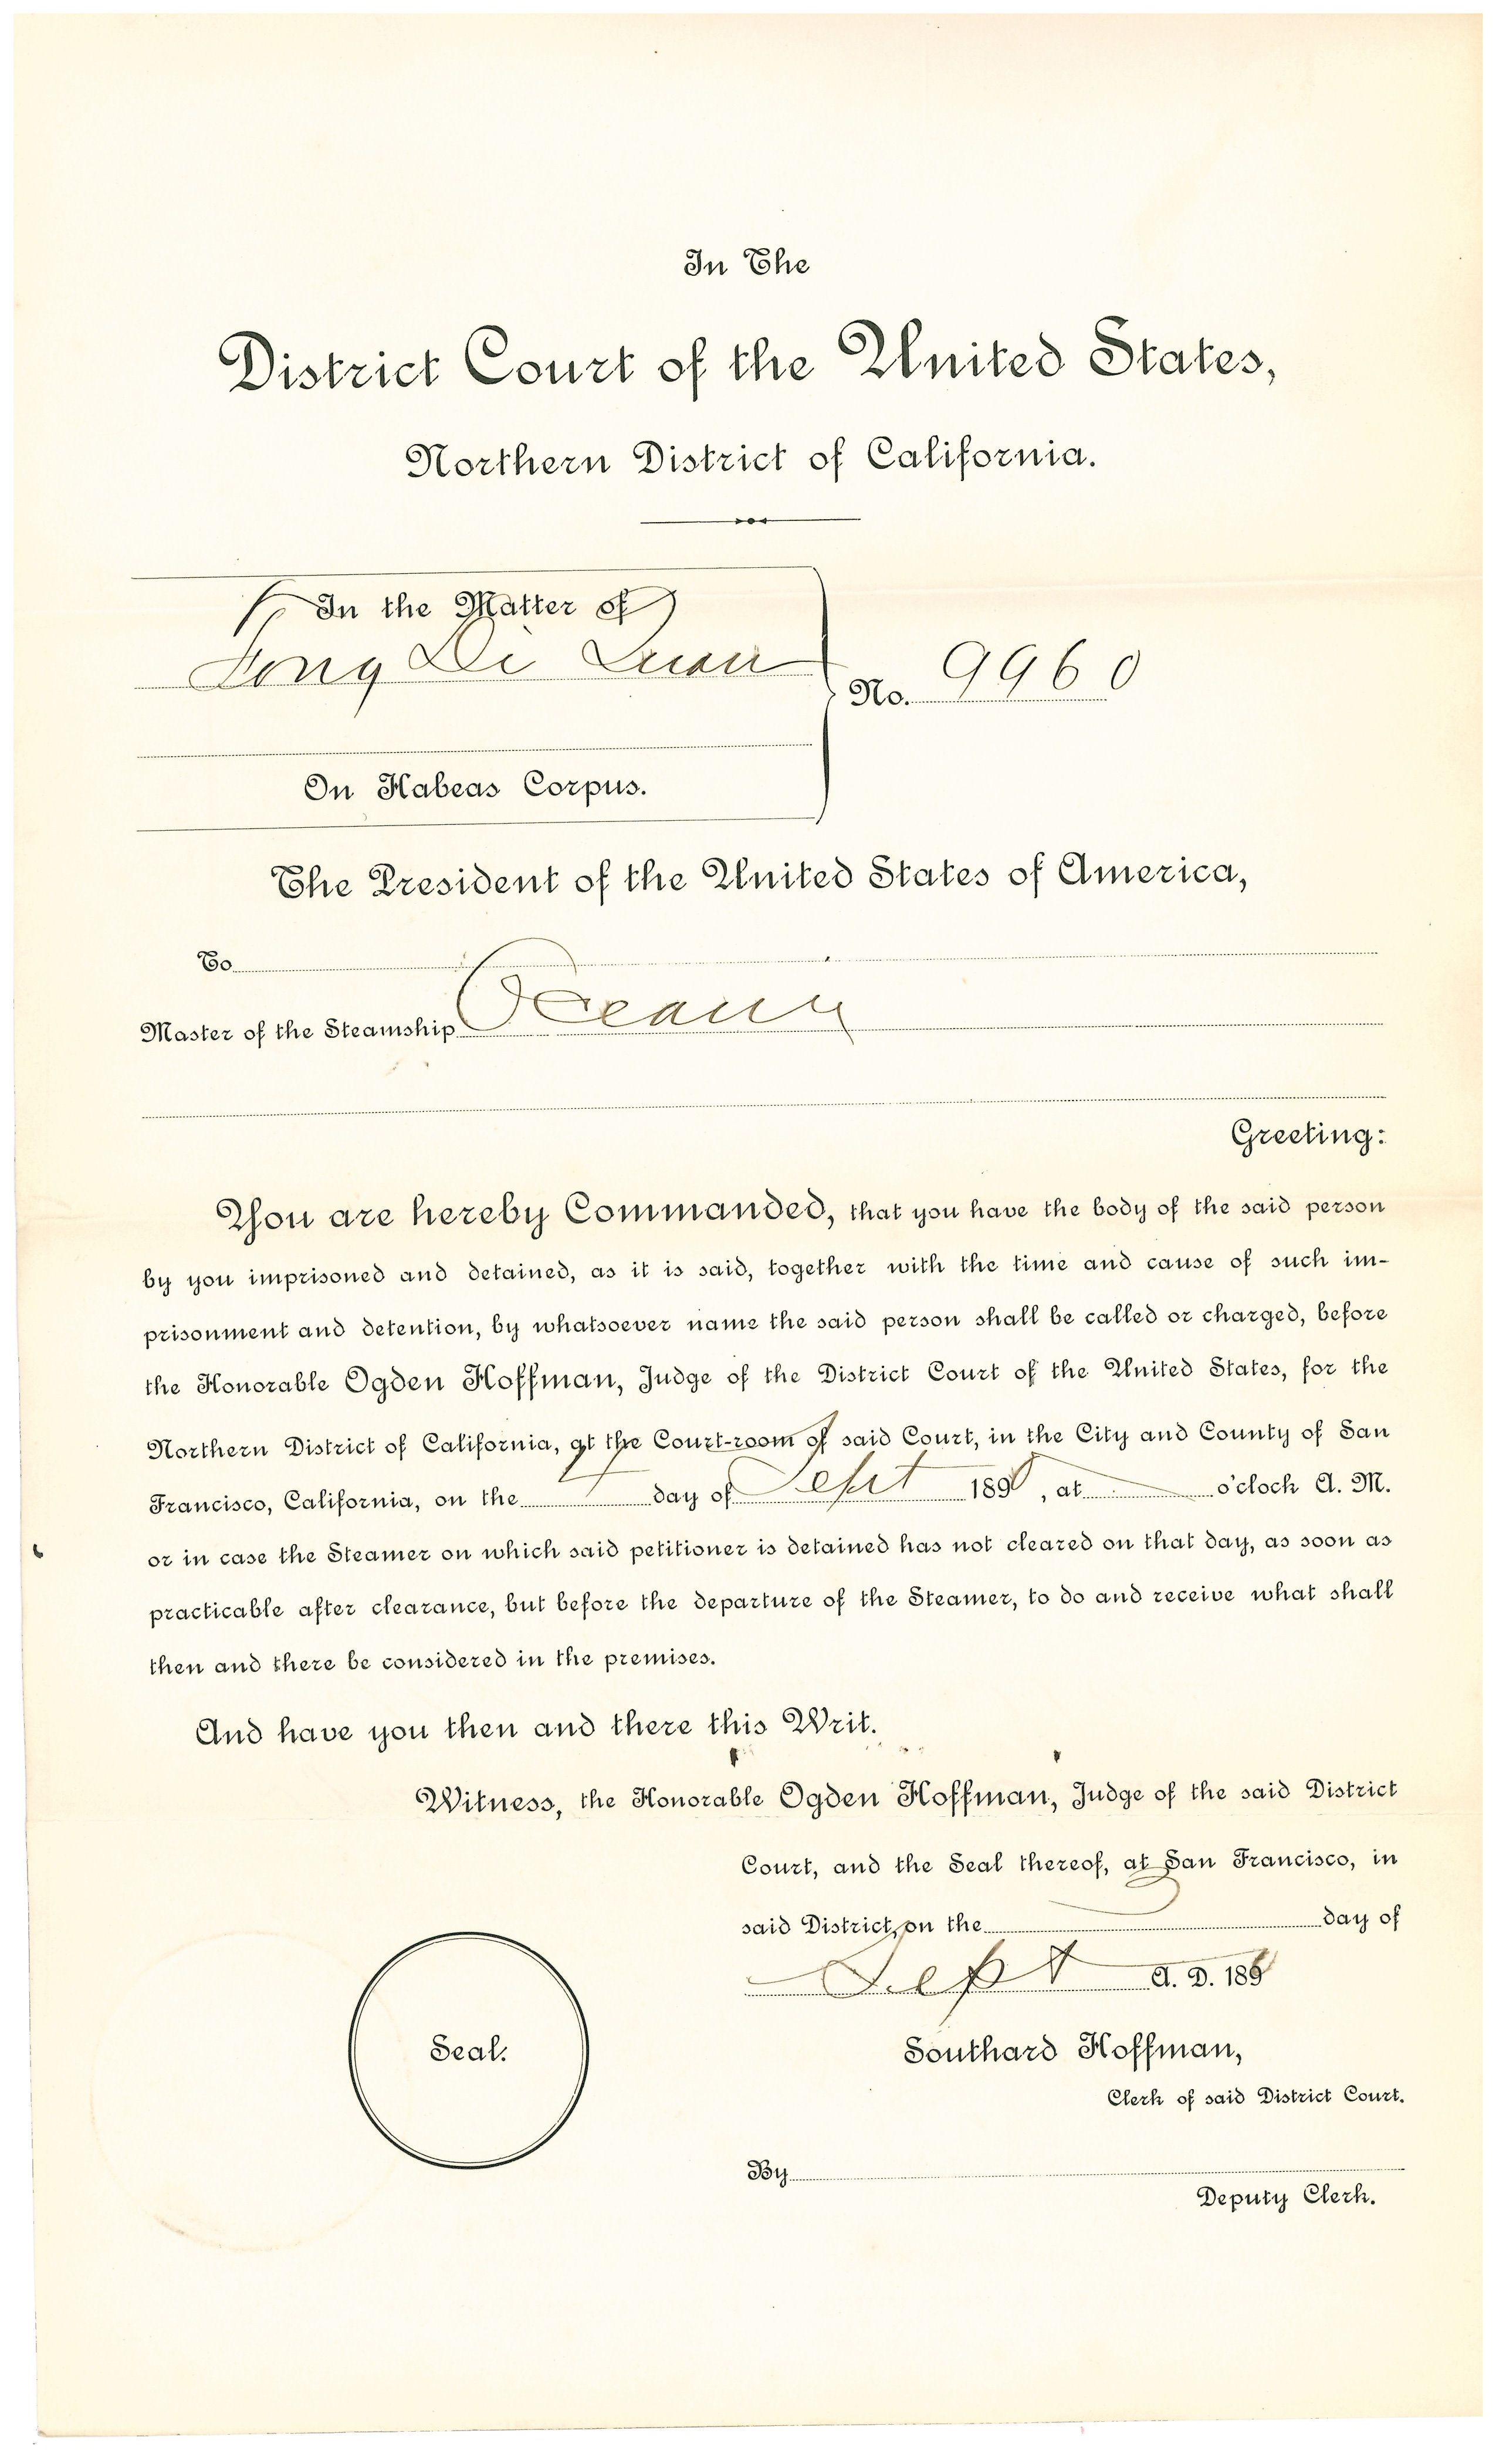 In The
District Court of the United States,
Northern District of California.
In the Matter of
Fong Di Quan
No. 9960
On Habeas Corpus.
The President of the United States of America,
To
Master of the Steamship Oceanic
Greeting:
You are hereby Commanded, that you have the body of the said person
by you imprisoned and detained, as it is said, together with the time and cause of such im-
prisonment and detention, by whatsoever name the said person shall be called or charged, before
the Honorable Ogden Hoffman, Judge of the District Court of the United States, for the
Northern District of California, at the Court-room of said Court, in the City and County of San
Francisco, California, on the day of Sept 189 , at o'clock A. M.
or in case the Steamer on which said petitioner is detained has not cleared on that day, as soon as
practicable after clearance, but before the departure of the Steamer, to do and receive what shall
then and there be considered in the premises.
And have you then and there this Writ.
Witness, the Honorable Ogden Hoffman, Judge of the said District
Court, and the Seal thereof, at San Francisco, in
said District, on the day of
Sept A. D. 18
Seal.
Southard Hoffman,
Clerk of said District Court.
By
Deputy Clerk.